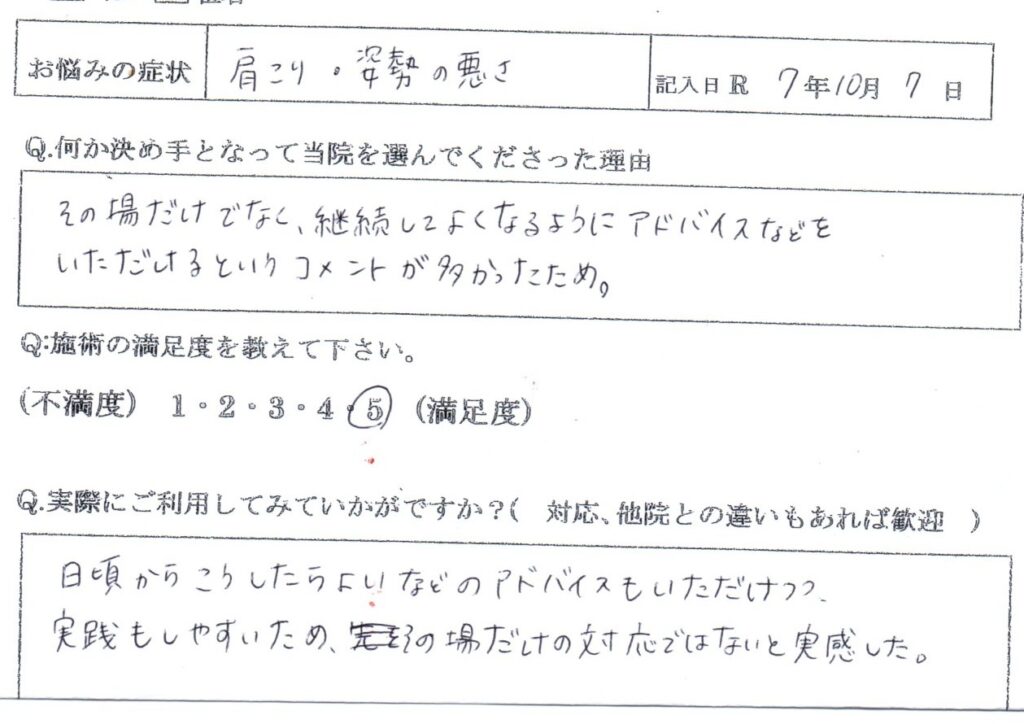 お悩みの症状 肩こり・姿勢の悪さ 記入日R 7年10月7日
Q.何か決め手となって当院を選んでくださった理由
その場だけでなく、継続してよくなるようにアドバイスなどを
いただけるというコメントが多かったため。
Q:施術の満足度を教えて下さい。
(不満度) 1・2・3・4・5 (満足度)
Q.実際にご利用してみていかがですか?( 対応、他院との違いもあれば歓迎 )
日頃からこうしたらよいなどのアドバイスもいただけつつ、
実践もしやすいため、その場だけの対応ではないと実感した。